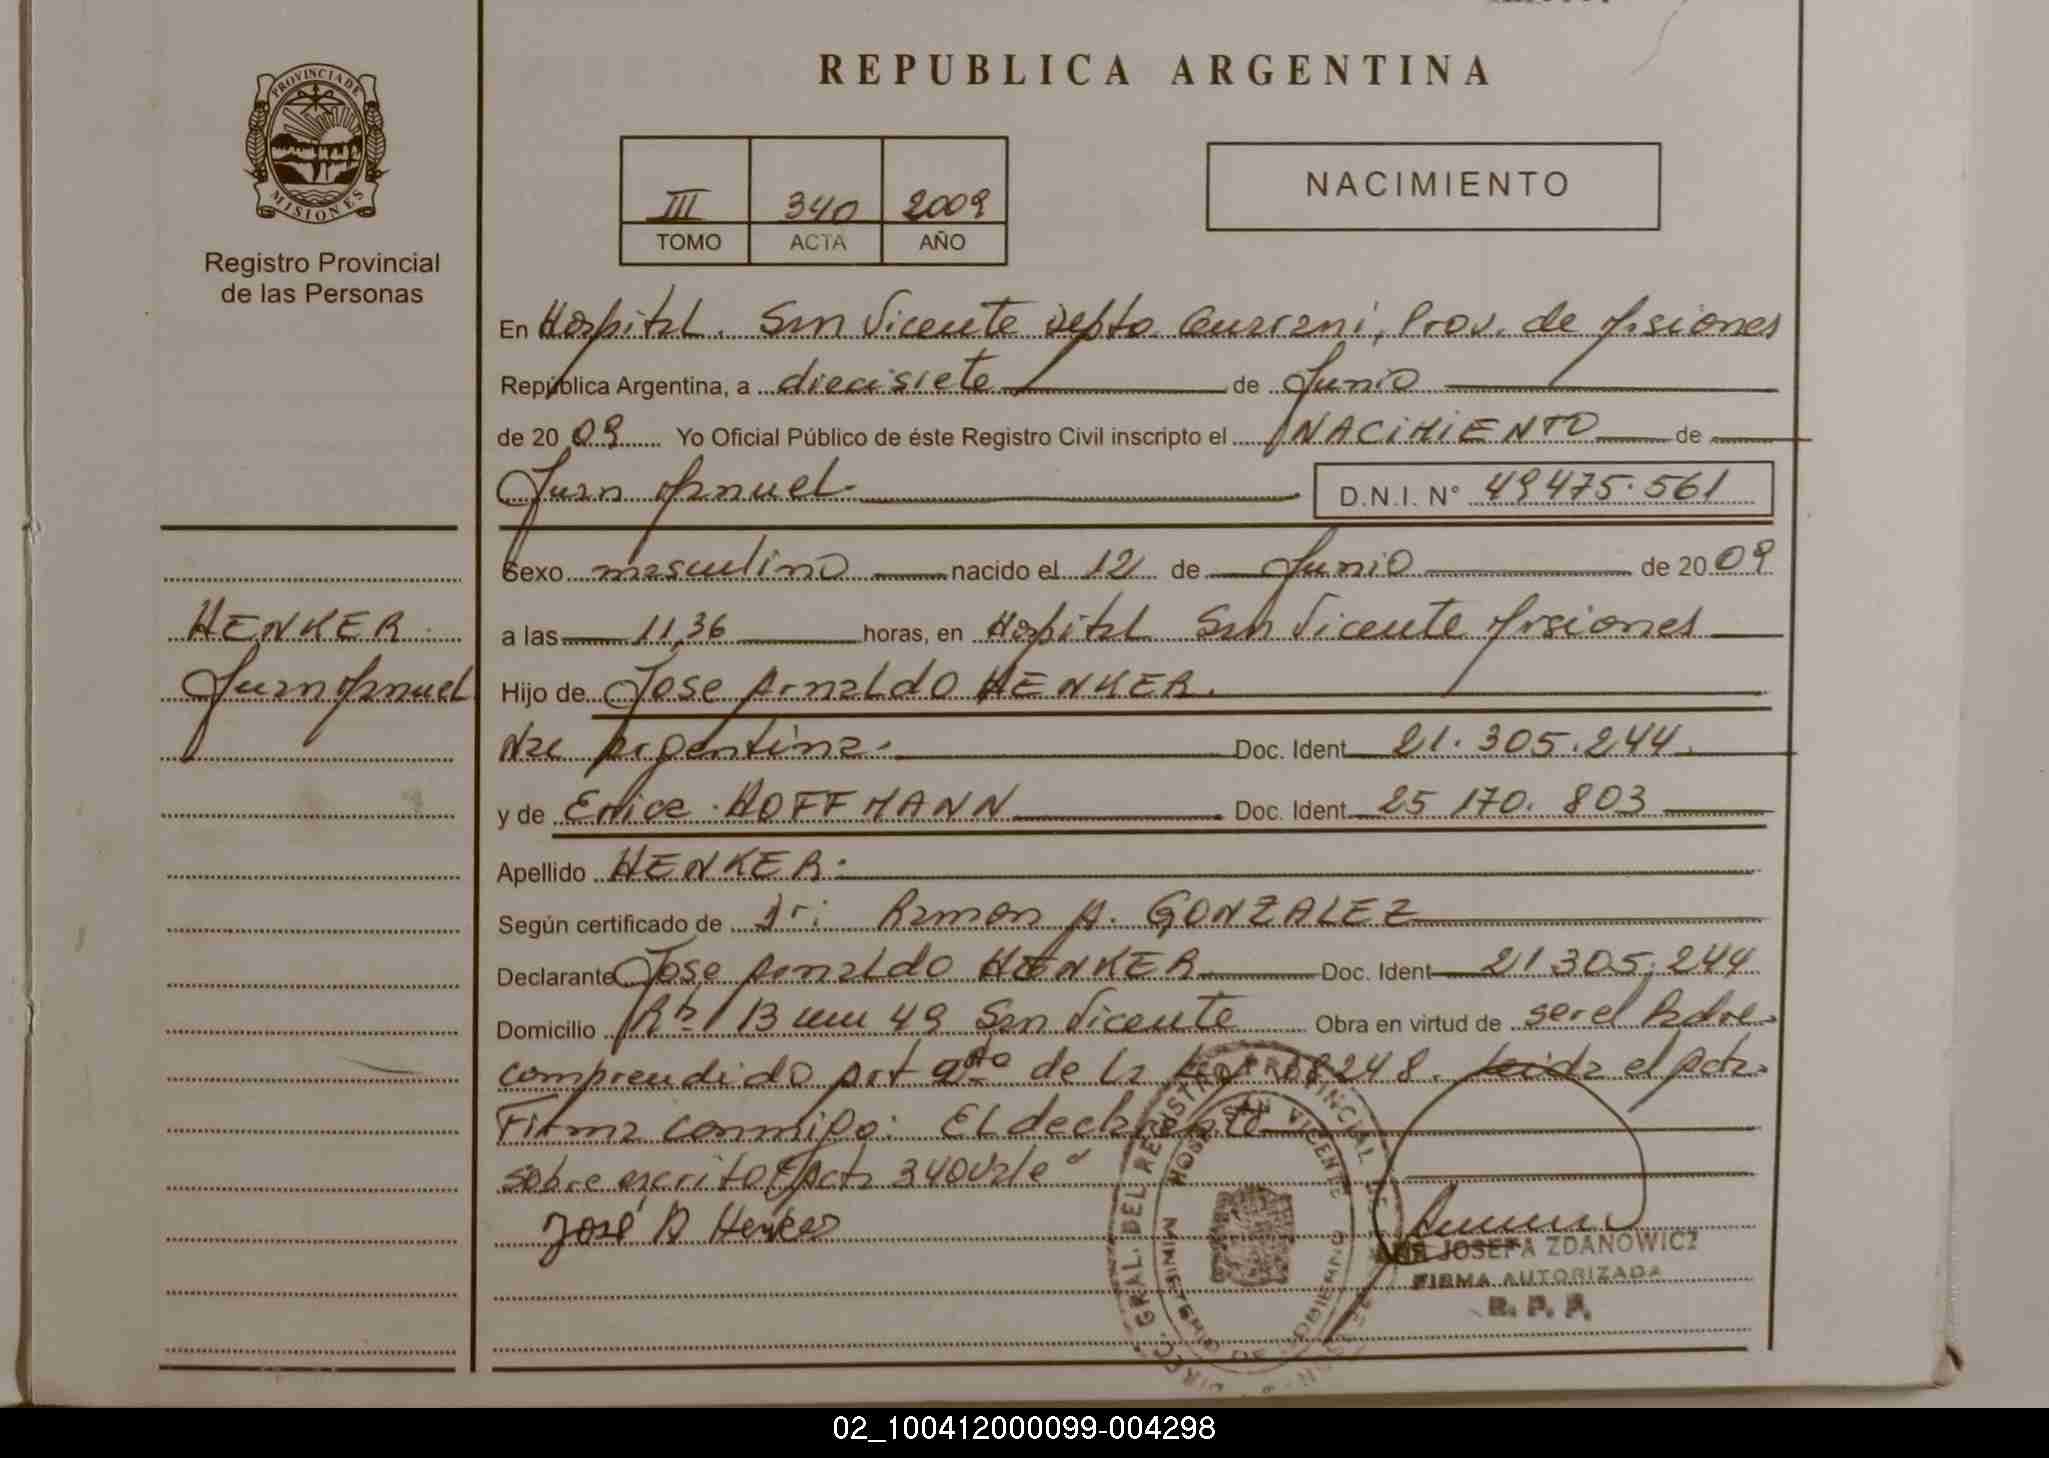 REPUBLICA ARGENTINA
PROVINCIA DE
MISIONES
Registro Provincial
de las Personas
III 340 2009
TOMO ACTA AÑO
NACIMIENTO
En Hospital. San Vicente Depto. Guarani, Prov. de Misiones
República Argentina, a diecisiete de Junio
de 20 09 Yo Oficial Público de éste Registro Civil inscripto el NACIMIENTO de
Juan Manuel. D.N.I. N° 49475.561
Sexo masculino nacido el 12 de Junio de 20 09
HENKER
a las 11,36 horas, en Hospital San Vicente Misiones
Juan Manuel
Hijo de Jose Arnaldo HENKER.
Nac Argentina. Doc. Ident 21.305.244.
y de Enice HOFFMANN Doc. Ident 25 170. 803
Apellido HENKER.
Según certificado de Dr: Ramon A. GONZALEZ
Declarante Jose Arnaldo HENKER Doc. Ident 21 305.244
Domicilio 13 49 San Vicente Obra en virtud de ser el Padre
comprendido Art de la Ley 18248. Leida el Acta
Firma conmigo: El declarante
sobre escrito Acta 340 Vale
José A Henker
DIREC. GRAL. DEL REGISTRO PROVINCIAL DE
SAN VICENTE
MINISTERIO DE GOBIERNO
JOSEFA ZDANOWICZ
FIRMA AUTORIZADA
R. P. P.
02_100412000099-004298